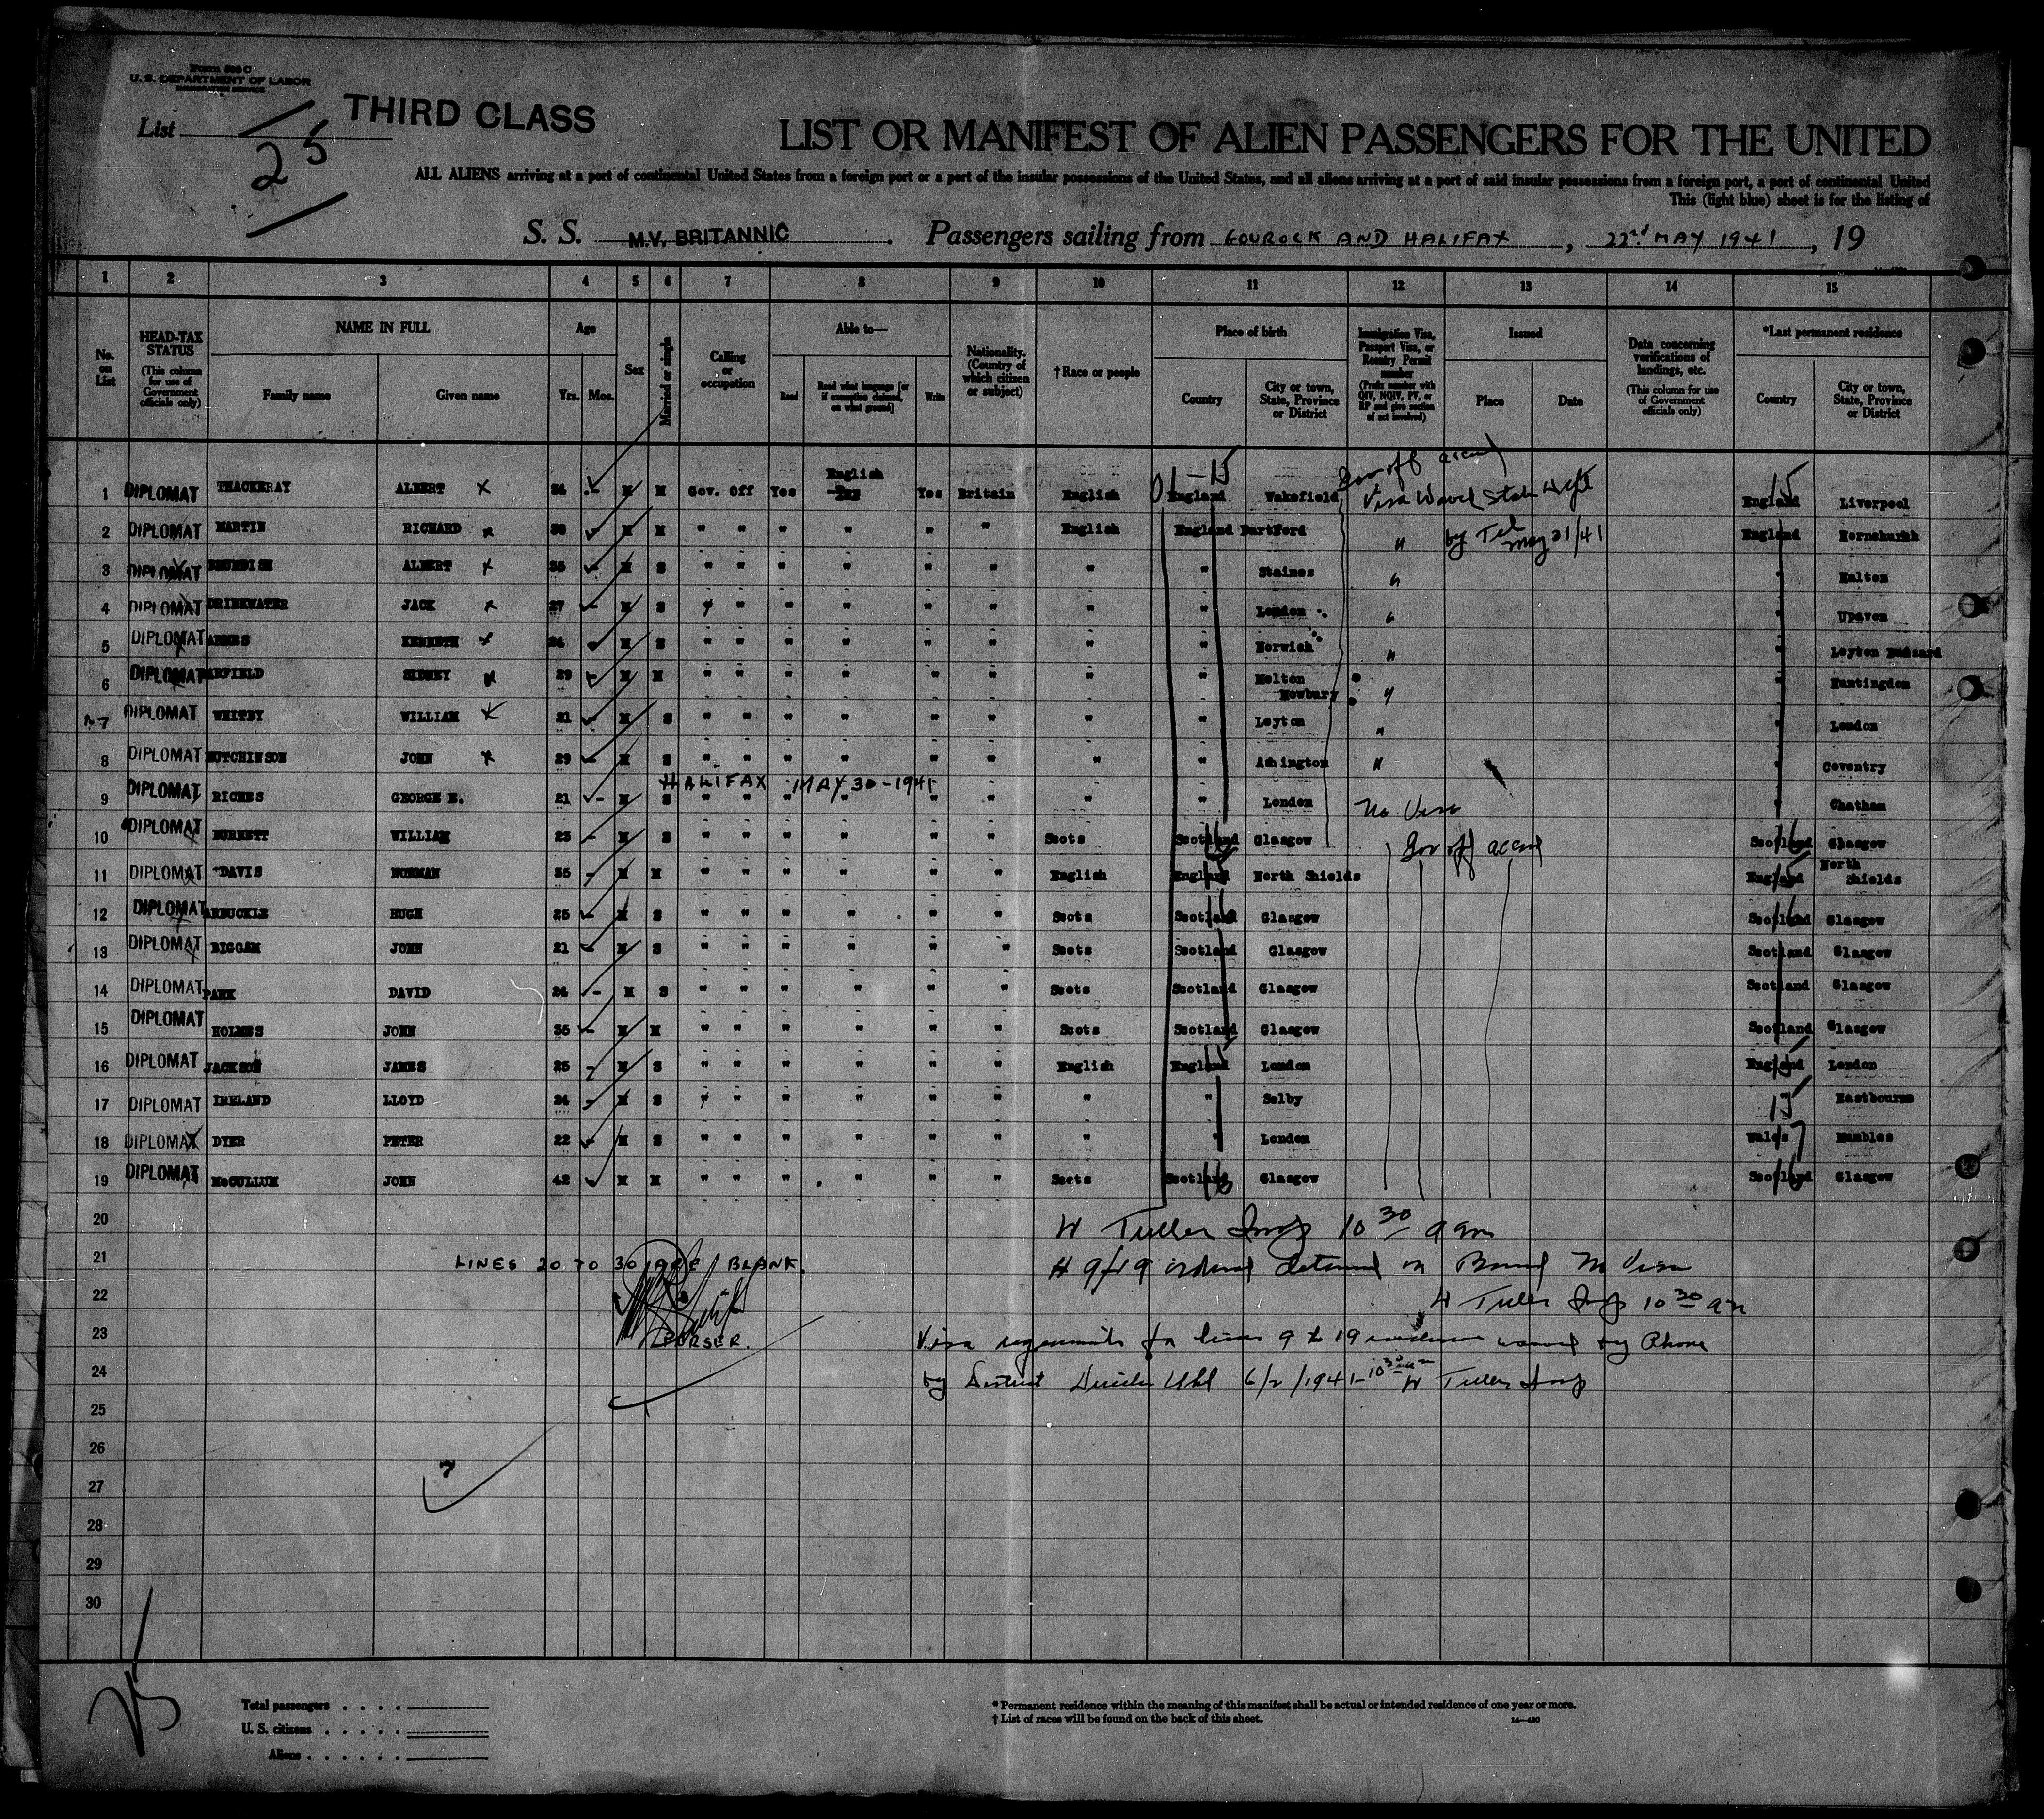 Form 500 C
U. S. DEPARTMENT OF LABOR
List
25
THIRD CLASS
LIST OR MANIFEST OF ALIEN PASSENGERS FOR THE UNITED
ALL ALIENS arriving at a port of continental United States from a foreign port or a port of the insular possessions of the United States, and all aliens arriving at a port of said insular possessions from a foreign port, a port of continental United
This (light blue) sheet is for the listing of
S. S. M.V. BRITANNIC. Passengers sailing from GOUROCK AND HALIFAX, 22nd MAY 1941, 19
1 2 3 4 5 6 7 8 9 10 11 12 13 14 15
No. on List
HEAD-TAX STATUS (This column for use of Government officials only)
NAME IN FULL
Family name
Given name
Age
Yrs. Mos.
Sex
Married or single
Calling or occupation
Able to—
Read
Read what language [or if exemption claimed, on what ground]
Write
Nationality. (Country of which citizen or subject)
†Race or people
Place of birth
Country
City or town, State, Province or District
Immigration Visa, Passport Visa, or Reentry Permit number (Prefix number with QIV, NQIV, PV, or RP and give section of act involved)
Issued
Place
Date
Data concerning verifications of landings, etc. (This column for use of Government officials only)
*Last permanent residence
Country
City or town, State, Province or District
1 DIPLOMAT THACKERAY ALBERT X M M Gov. Off Yes English Yes Britain English England Wakefield Visa Waived State Dept England Liverpool
2 DIPLOMAT MARTIN RICHARD x M M " " " " " " English England Dartford " by Tel May 21/41 England Hornchurch
3 DIPLOMAT ALBERT x 35 M S " " " " " " " " Staines " " Halton
4 DIPLOMAT DRINKWATER JACK x 27 M S " " " " " " " " London " " Upavon
5 DIPLOMAT KENNETH x M S " " " " " " " " Norwich " " Leyton Buzzard
6 DIPLOMAT SIDNEY x 29 M M " " " " " " " " Melton Mowbury " " Huntingdon
7 DIPLOMAT WHITBY WILLIAM X 21 M S " " " " " " " " Leyton " " London
8 DIPLOMAT HUTCHINSON JOHN x 29 M S " " " " " " " " Ashington " " Coventry
HALIFAX MAY 30-1941
9 DIPLOMAT RICHES GEORGE E. 21 M S " " " " " " " " London No Visa " Chatham
10 DIPLOMAT BURNETT WILLIAM 23 M S " " " " " " Scots Scotland Glasgow Gov off Scotland Glasgow
11 DIPLOMAT DAVIS NORMAN 35 M M " " " " " " English England North Shields England North Shields
12 DIPLOMAT ARBUCKLE HUGH 25 M S " " " " " " Scots Scotland Glasgow Scotland Glasgow
13 DIPLOMAT BIGGAM JOHN 21 M S " " " " " " Scots Scotland Glasgow Scotland Glasgow
14 DIPLOMAT PARK DAVID 24 M S " " " " " " Scots Scotland Glasgow Scotland Glasgow
15 DIPLOMAT HOLMES JOHN 35 M M " " " " " " Scots Scotland Glasgow Scotland Glasgow
16 DIPLOMAT JACKSON JAMES 25 M S " " " " " " English England London England London
17 DIPLOMAT IRELAND LLOYD 24 M S " " " " " " " " Selby 15 Eastbourne
18 DIPLOMAT DYER PETER 22 M S " " " " " " " " London Wales Mumbles
19 DIPLOMAT McCULLUM JOHN 42 M M " " " " " " Scots Scotland Glasgow Scotland Glasgow
20 H Tuller Insp 10 30 am
21 LINES 20 TO 30 ARE BLANK. # 9 to 19 ordered detained on Board No Visa
22 H Tuller Insp 10 30 am
23 PURSER. Visa for lines 9 to 19 waived by Phone
24 by District Uhl 6/2/1941 - 10 30 am H Tuller Insp
25
26
27
28
29
30
25
Total passengers
U. S. citizens
Aliens
* Permanent residence within the meaning of this manifest shall be actual or intended residence of one year or more.
† List of races will be found on the back of this sheet.